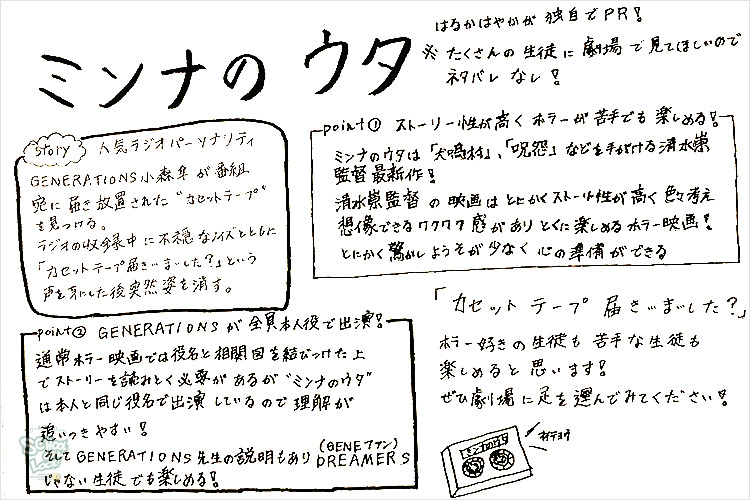 ミンナのウタ
はるかはやかが独自でPR!
※たくさんの生徒に劇場で見てほしいので
ネタバレなし!
story 人気ラジオパーソナリティ
GENERATIONS小森隼が番組
宛に届き放置された"カセットテープ"
を見つける。
ラジオの収録中に不穏なノイズとともに
「カセットテープ届きいました?」という
声を耳にした後突然姿を消す。
point① ストーリー性が高くホラーが苦手でも楽しめる!
ミンナのウタは「犬鳴村」、「呪怨」などを手がける清水崇
監督最新作!
清水崇監督の映画はとにかくストーリー性が高く色々考え
想像できるワクワク感がありとくに楽しめるホラー映画!
とにかく驚かしようそが少なく心の準備ができる
point② GENERATIONSが全員本人役で出演!
通常ホラー映画では役名と相関図を結びつけた上
でストーリーを読みとく必要があるが"ミンナのウタ"
は本人と同じ役名で出演しているので理解が
追いつきやすい!
そしてGENERATIONS先生の説明もあり DREAMERS
(GENEファン)
じゃない生徒でも楽しめる!
「カセットテープ届きいました?」
ホラー好きの生徒も苦手な生徒も
楽しめると思います!
ぜひ劇場に足を運んでみてください!
ミンナノウタ